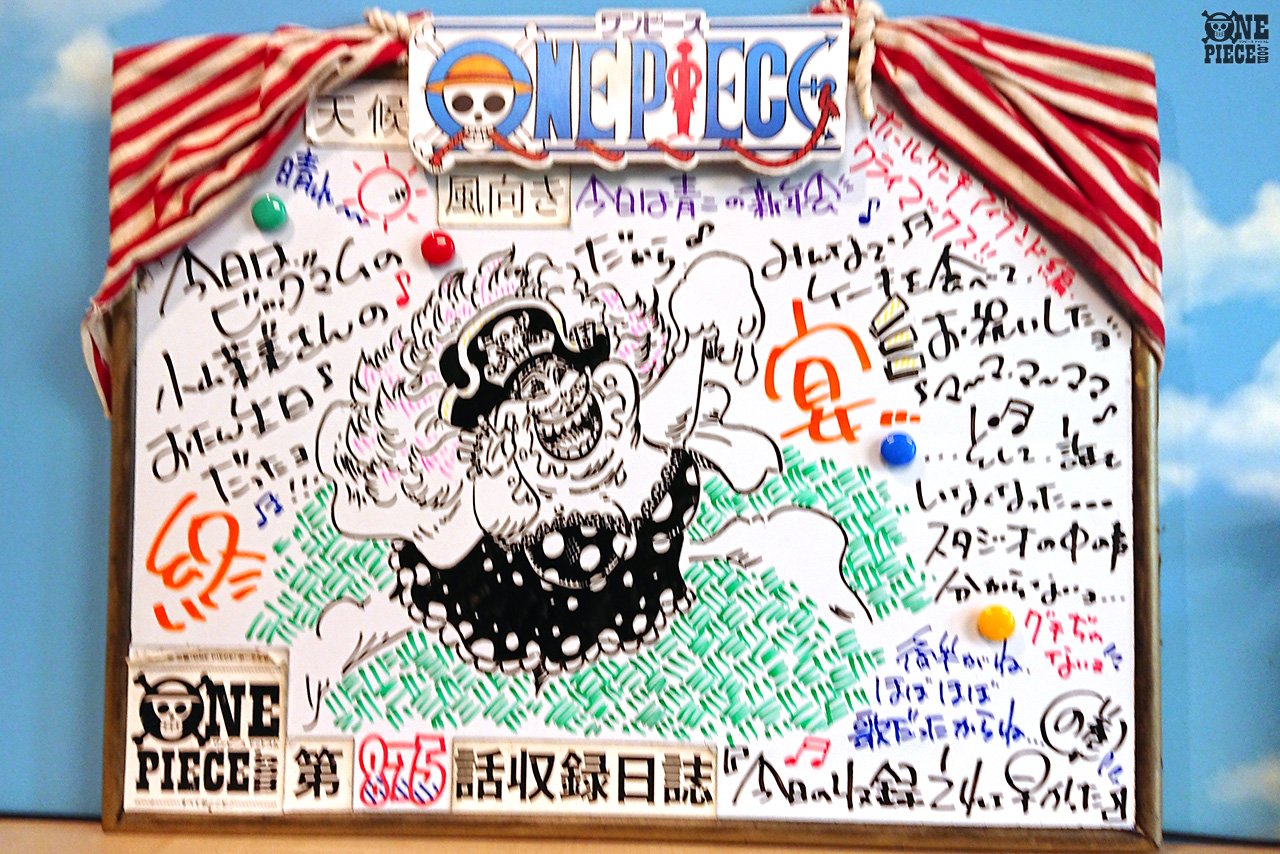 ワンピース
ONE PIECE
ONE
PIECE.com
天候
晴れ
風向き
今日は青ニの新年会
ホールケーキアイランド編、
クライマックス!!
今日は、
ビッグマムの
小山茉美さんの
お誕生日
だったョ!!!
だから
みんなで、
ケーキを食べて、
お祝いした…
宴…
マ〜マ、マ〜ママ
…そして、誰も
いなくなった…
スタジオの中の声
分からないョ…
グチぢゃ
ないョ
音楽がね、
ほぼほぼ
歌だったからね…
の巻
ONE
PIECE.com
第875話収録日誌
『今日の収録